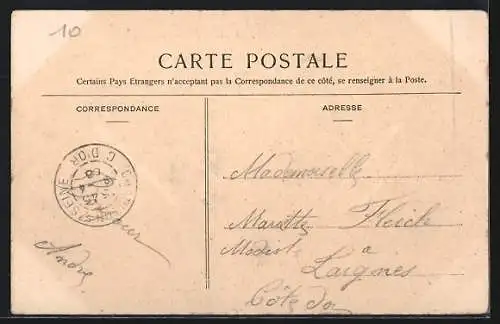 10
CARTE POSTALE
Certains Pays Etrangers n'acceptant pas la Correspondance de ce côté, se renseigner à la Poste.
CORRESPONDANCE
ADRESSE
S SEINE
C. D'OR
André
Mademoiselle
Mariette Fleick
Modiste
à
Laignes
Côte d'or